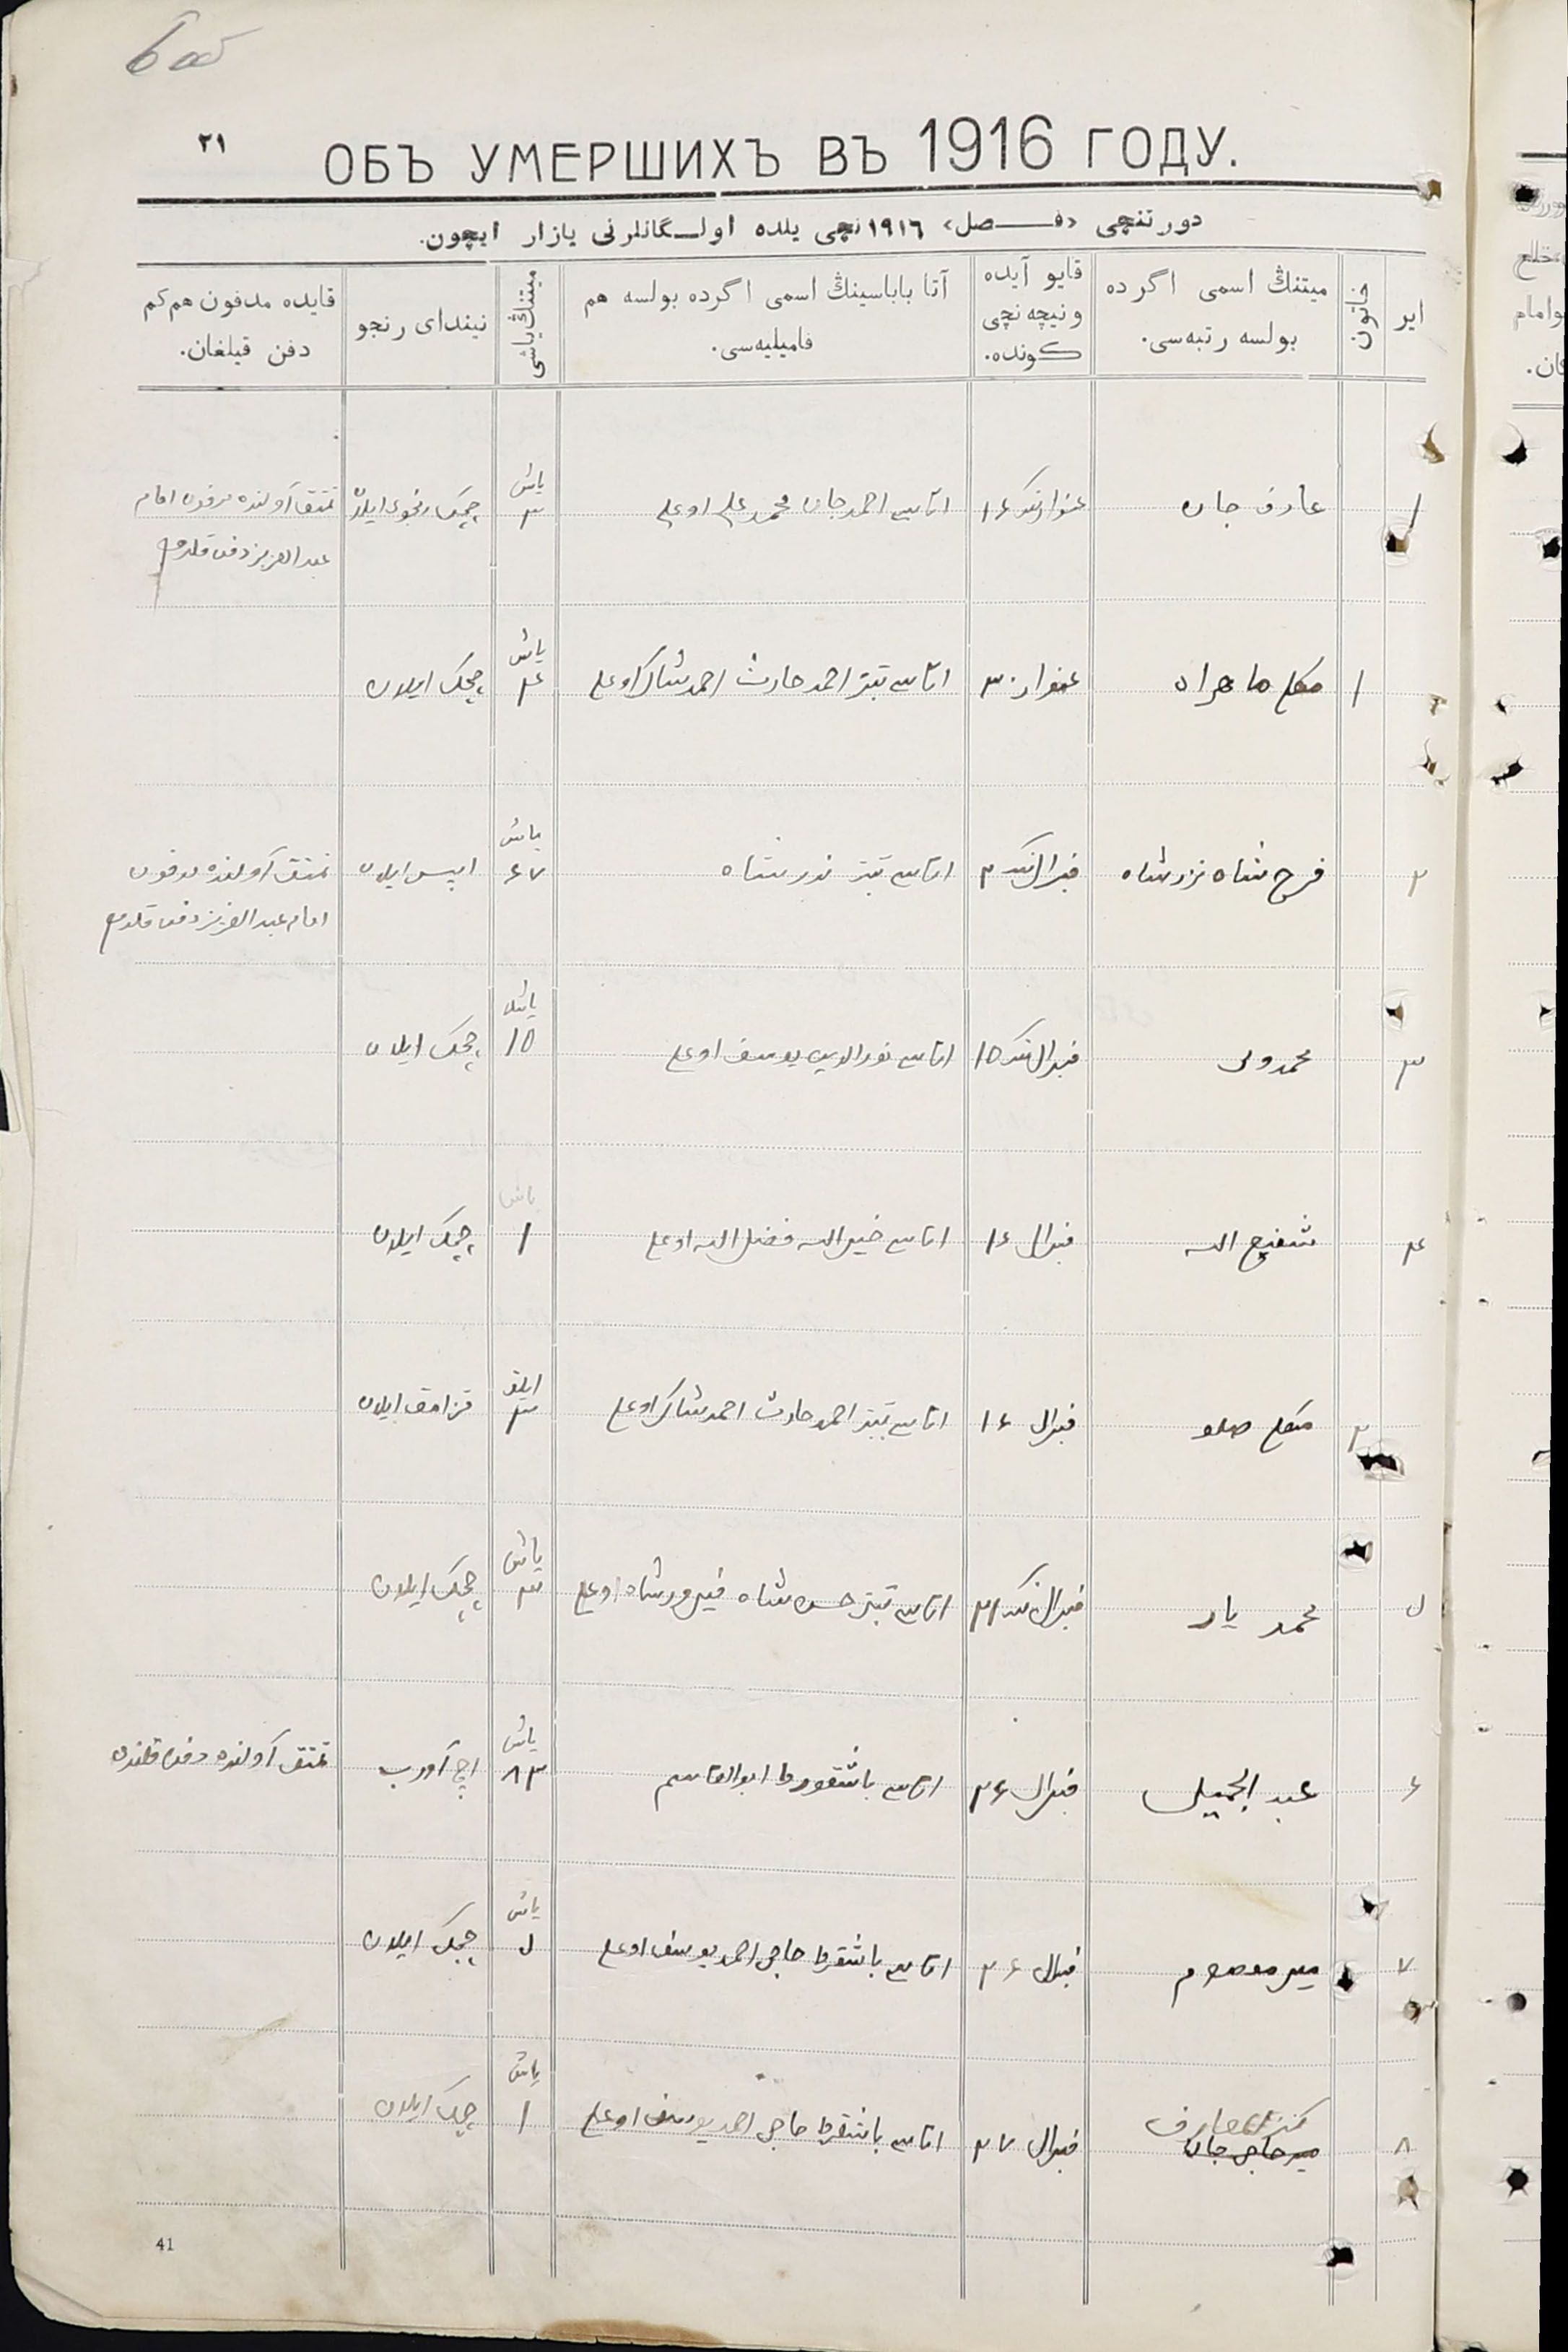 ۲۱
ОБЪ УМЕРШИХЪ ВЪ 1916 ГОДУ.
دورتنچی «فـــصل» ۱۹۱٦ نچی یلده اولـگانلرنی یازار ایچون.
ایر
خاتون
میتنڭ اسمی اگرده بولسه رتبه‌سی.
قایو آیده و نیچه نچی کونده.
آتا باباسینڭ اسمی اگرده بولسه هم فامیلیه‌سی.
میتنڭ یاشی
نیندای رنجو
قایده مدفون هم کم دفن قیلغان.
۱ عارف جان غنوارنڭ ۱۶ اتاسی احمد جان محمد علی اوغلی یاش ۳ چچک رنجوی ایلان اولنده مدفون امام
عبد العزیز دفن قلدم
۱ غنوار ۳۰ اتاسی تبتر احمد حارث احمد شاکر اوغلی یاش ۴ چچک ایلان
۲ فرح شاه نزرشاه فبرالنڭ ۲ اتاسی تبتر نذرشاه یاش ۶۷ ایلان اولنده مدفون
امام عبد العزیز دفن قلدم
۳ محمدولی فبرالنڭ ۱۵ اتاسی نورالدین یوسف اوغلی یاش ۱۵ چچک ایلان
۴ شفیع الله فبرال ۱۶ اتاسی خیرالله فضل الله اوغلی یاش ۱ چچک ایلان
۲ فبرال ۱۶ اتاسی تبتر احمد حارث احمد شاکر اوغلی ایلق ۳ قزامق ایلان
۵ محمد یار فبرالنڭ ۲۱ اتاسی تبتر حسن شاه فیروزشاه اوغلی یاش ۳ چچک ایلان
۶ عبد الجمیل فبرال ۲۶ اتاسی باشقورط ابوالقاسم یاش ۸۳ اچ آورب اولنده دفن قلندی
۷ میر معصوم فبرال ۲۶ اتاسی باشقرط حاجی احمد یوسف اوغلی یاش ۵ چچک ایلان
عارف
۸ میرحاجی جان فبرال ۲۷ اتاسی باشقرط حاجی احمد یوسف اوغلی یاش ۱ چچک ایلان
41